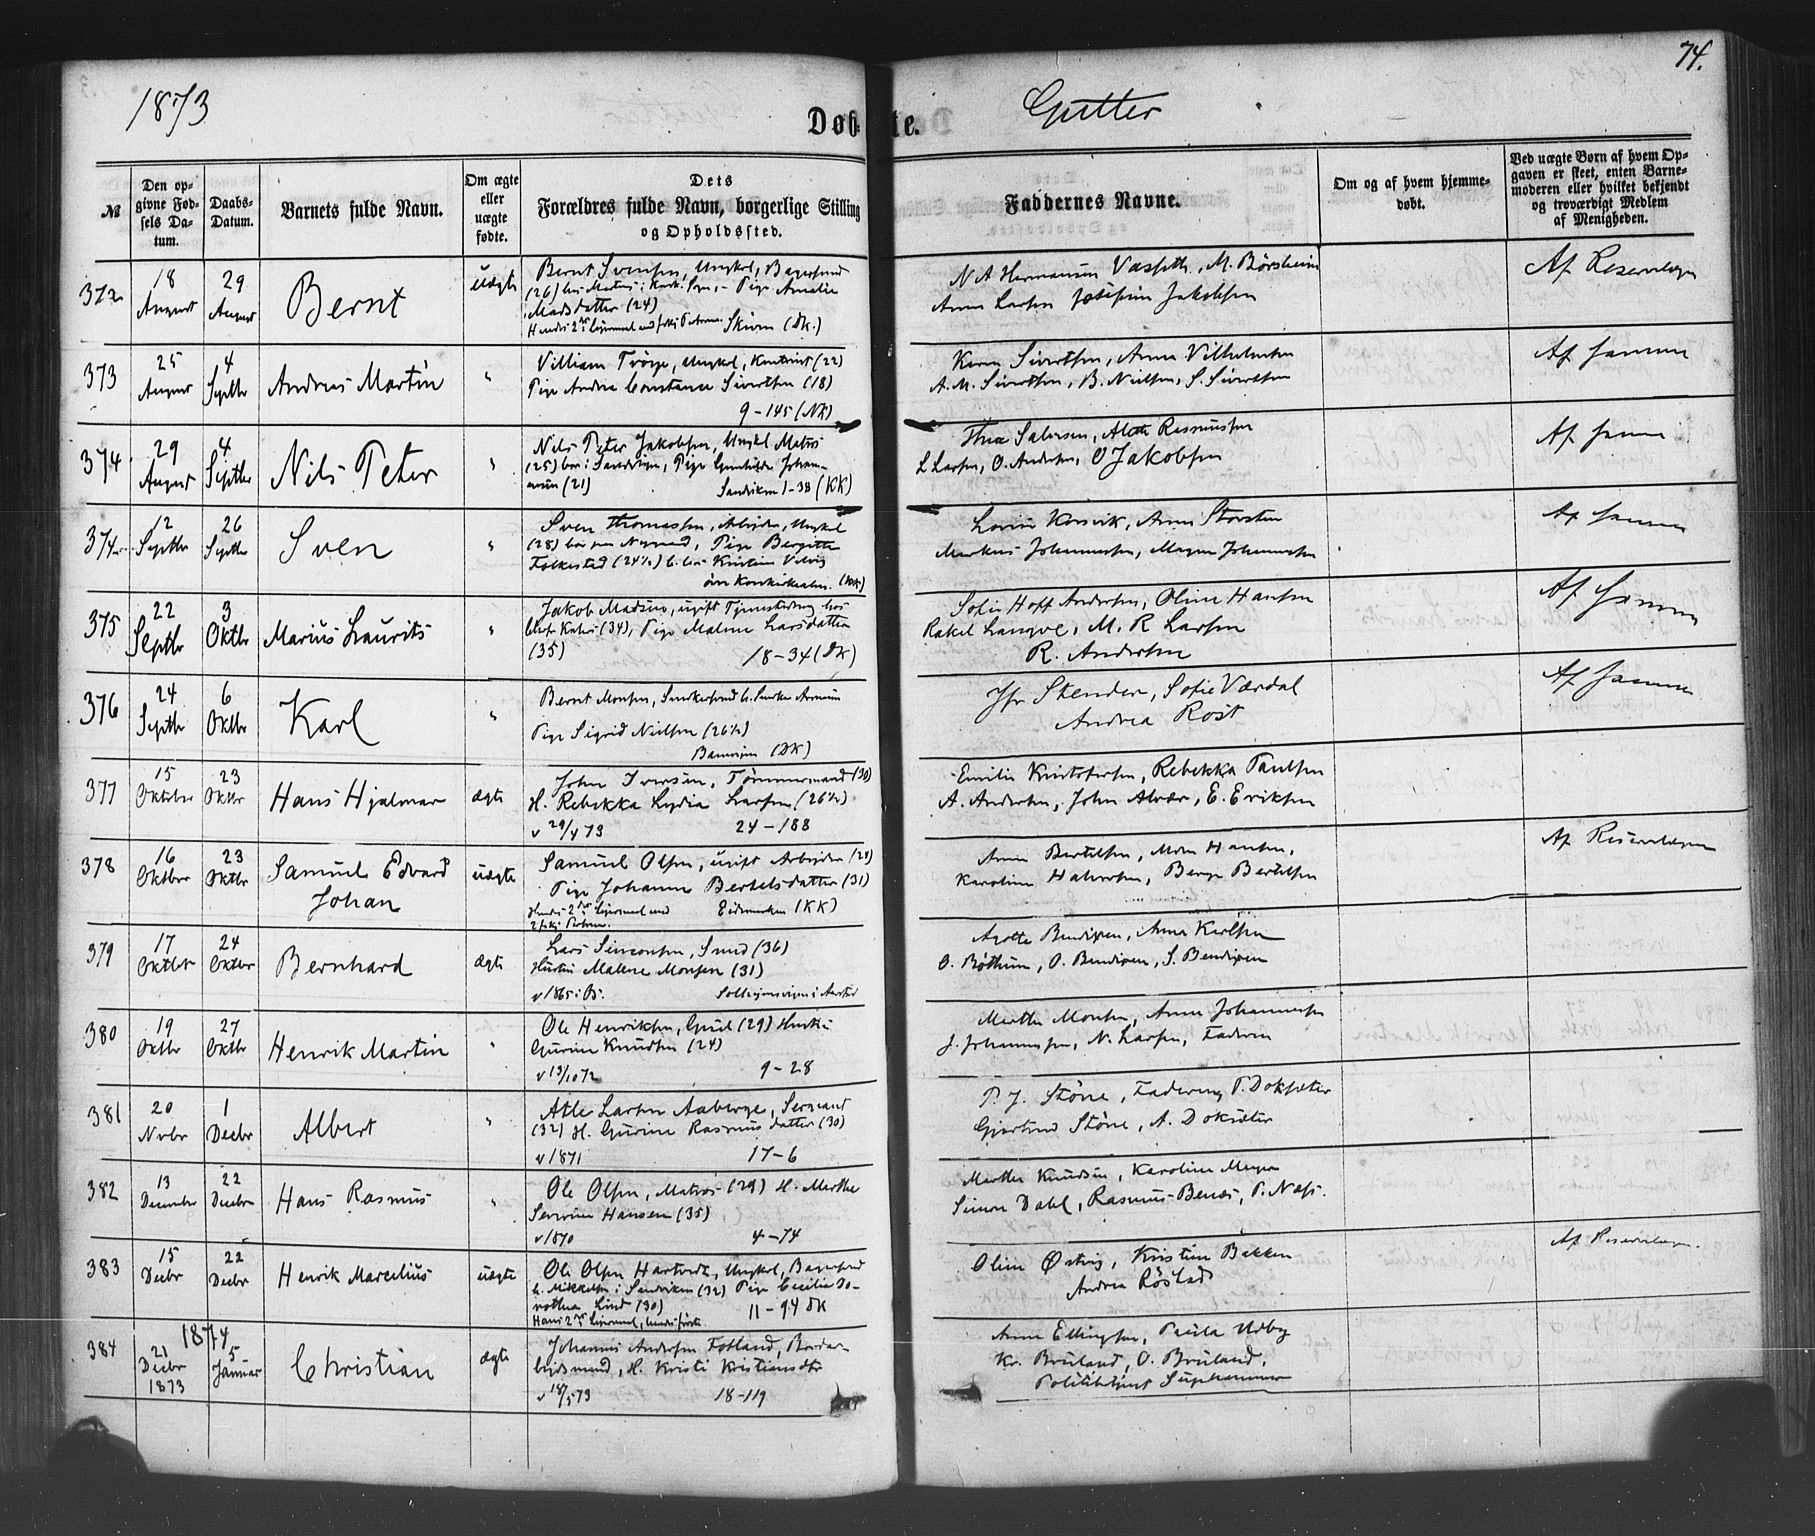 1873
Døbte.
Gutter
74.
№
Den opgivne Fødsels Datum.
Daabs-Datum.
Barnets fulde Navn.
Om ægte eller uægte fødte.
Dets Forældres fulde Navn, borgerlige Stilling og Opholdssted.
Faddernes Navne.
Om og af hvem hjemmedøbt.
Ved uægte Børn af hvem Opgaven er skeet, enten Barnemoderen eller hvilket bekjendt og troværdigt Medlem af Menigheden.
372 18 August 29 August Bernt uægte
Bernt Svensen, Ungkl, Bagersvend
(26) Pige Amalie
Madsdatter (24)
Skiven (Dk.)
N A Hermansen M. Börsheim
Anna Larsen Josefine Jakobsen
Af Reservelægen
373 25 August 4 Septbr Andreas Martin "
Villiam Ungkl, Kontorist (22)
Pige Andrea Constance Sivertsen (18)
9-145 (NK)
Karen Sivertsen, Anna Vilhelmsen
A. M. Sivertsen, B. Nielsen, S. Sivertsen
Af samme
374 29 August 4 Septbr Nils Peter "
Nils Peter Jakobsen, Ungkl Matros
(25) bor i Sandvigen, Pige Gunhilde Johannesen (21)
Sandviken 1-38 (KK)
Thea Salvesen, Alette Rasmussen
L Larsen, O. Andersen, O Jakobsen
Af samme
374 12 Septbr 26 Septbr Sven "
Sven Thomassen, Arbeider, Ungkl
(28) Pige Bergitte
Folkestad (24½)
(KK)
Anna Torsten
Markus Johannesen, Magna Johannesen
Af samme
375 22 Septbr 3 Oktbr Marius Laurits "
Jakob Madsen, ugift Tjenestedreng hos
(34), Pige Malene Larsdatter
(35)
18-34 (DK)
Sofie Hoff Andersen, Oline Hansen
Rakel M. R Larsen
R. Andersen
Af samme
376 24 Septbr 6 Oktbr Karl "
Bernt Monsen,
Pige Sigrid Nielsen (26½)
(DK)
Jfr Stender, Sofie Værdal
Andrea Rost
Af samme
377 15 Oktober 23 Oktbr Hans Hjalmar ægte
John Iversen, Tømmermand (30)
H. Rebekka Lydia Larsen (26½)
v 29/4 73 24-188
Emilie Kristofersen, Rebekka Paulsen
A. Andersen, John Alvær, E. Eriksen
378 16 Oktbr 23 Oktbr Samuel Edvard Johan uægte
Samuel Olsen, ugift Arbeider (24)
Pige Johanne Bertelsdatter (31)
Eidsmarken (KK)
Anna Bertelsen, Hansen,
Karoline Halvorsen, Berge Bertelsen
Af Reservelægen
379 17 Oktbr 24 Oktbr Bernhard ægte
Lars Simonsen, Smed (36)
Hustru Malene Monsen (31)
v 1865 i B.
Agathe Bendixen, Anna Karlsen
O. Röthum, O. Bendixen, S. Bendixen
380 19 Oktbr 27 Oktbr Henrik Martin "
Ole Henriksen, (29) Hustru
Gurine Knudsen (24)
v 13/10 72 9-28
Marthe Monsen, Anna Johannesen
J. Johannesen, N. Larsen, Faderen
381 20 Nvbr 1 Decbr Albert "
Atle Larsen Aaberge, Sergeant
(32) H. Gurine Rasmusdatter (30)
v 1871 17-6
P. J. Støne, Faderen, P. Doksæter
Gjertrud Støne, A. Doksæter
382 13 December 22 Decbr Hans Rasmus "
Ole Olsen, Matros (29) H. Marthe
Severine Hansen (35)
v 1870 4-74
Marthe Knudsen, Karoline Meyer
Simon Dahl, Rasmus Benæs, P. Næss.
383 15 Decbr 22 Decbr Henrik Marcelius uægte
Ole Olsen Ungkl, Bagersvend
h. Mikkelsen i Sandviken (32) Pige Cecilia Dorothea Lind (30)
11-94 DK
Oline Østvig, Kristine Bakken
Andrea Röstad
Af Reservelægen
384 1874 21 Decbr 1873 5 Januar Christian ægte
Johannes Andersen Fotland,
H. Kristi Kristiansdtr
v 18/5 73 18-119
Anna Ellingsen, Paula Udby
Kr. Bruland, O. Bruland,
Politibetjent